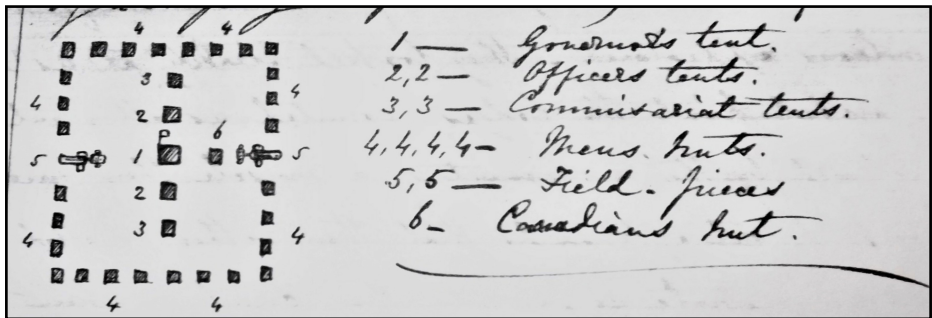 4 4
3
4 4
2
5 1 6 5
2
3
4 4
4 4
1 — Governors tent.
2,2 — Officers tents.
3,3 — Commissariat tents.
4,4,4,4 — Mens huts.
5,5 — Field-pieces
6 — Canadians hut.